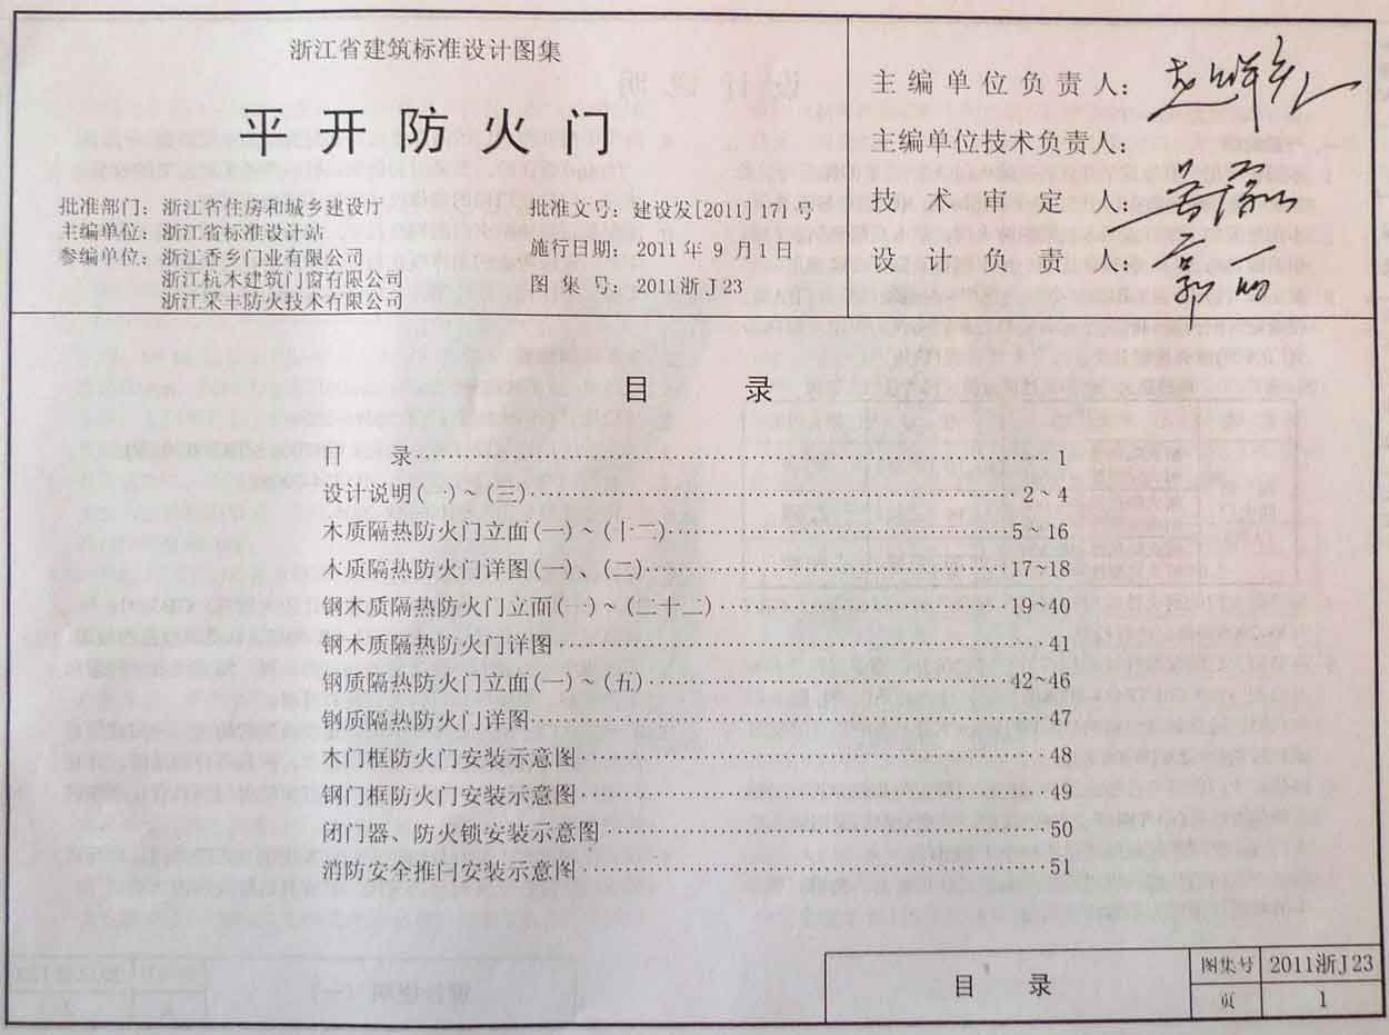 浙江省建筑标准设计图集
平开防火门
批准部门：浙江省住房和城乡建设厅
主编单位：浙江省标准设计站
参编单位：浙江香乡门业有限公司
浙江杭木建筑门窗有限公司
浙江采丰防火技术有限公司
批准文号：建设发[2011]171号
施行日期：2011年9月1日
图集号：2011浙J23
主编单位负责人：
主编单位技术负责人：
技术审定人：
设计负责人：
目 录
目 录……1
设计说明(一)~(三)……2~4
木质隔热防火门立面(一)~(十二)……5~16
木质隔热防火门详图(一)、(二)……17~18
钢木质隔热防火门立面(一)~(二十二)……19~40
钢木质隔热防火门详图……41
钢质隔热防火门立面(一)~(五)……42~46
钢质隔热防火门详图……47
木门框防火门安装示意图……48
钢门框防火门安装示意图……49
闭门器、防火锁安装示意图……50
消防安全推闩安装示意图……51
目 录
图集号 2011浙J23
页 1